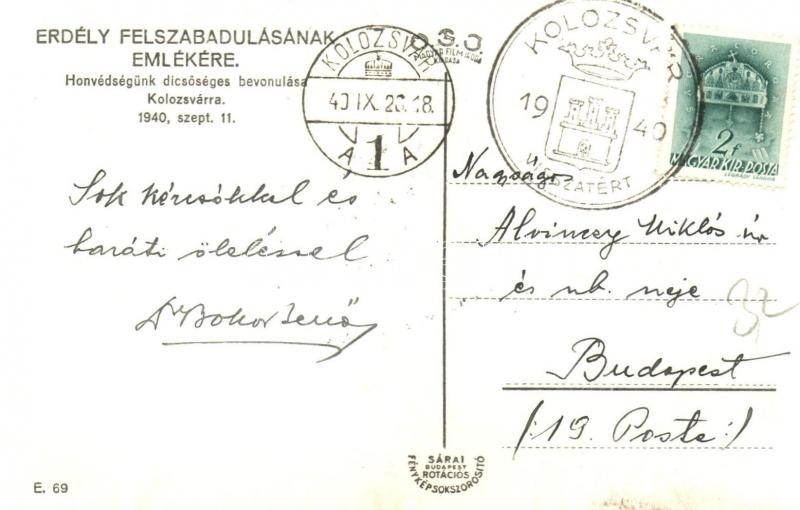 ERDÉLY FELSZABADULÁSÁNAK
EMLÉKÉRE.
Honvédségünk dicsőséges bevonulása
Kolozsvárra.
1940, szept. 11.
KOLOZSVÁR
40 IX. 26. 18.
A 1 A
MAGYAR FILM IRODA
KIADÁSA
KOLOZSVÁR
19 40
VISSZATÉRT
2f
MAGYAR KIR. POSTA
LÉGRÁDY SÁNDOR
Sok kézcsókkal és
baráti öleléssel
Dr Bokor Jenő
Nagyságos
Alvinczy Miklós úr
és nb. neje
32
Budapest
(:19. Posta:)
SÁRAI
BUDAPEST
ROTÁCIÓS
FÉNYKÉPSOKSZOROSÍTÓ
E. 69